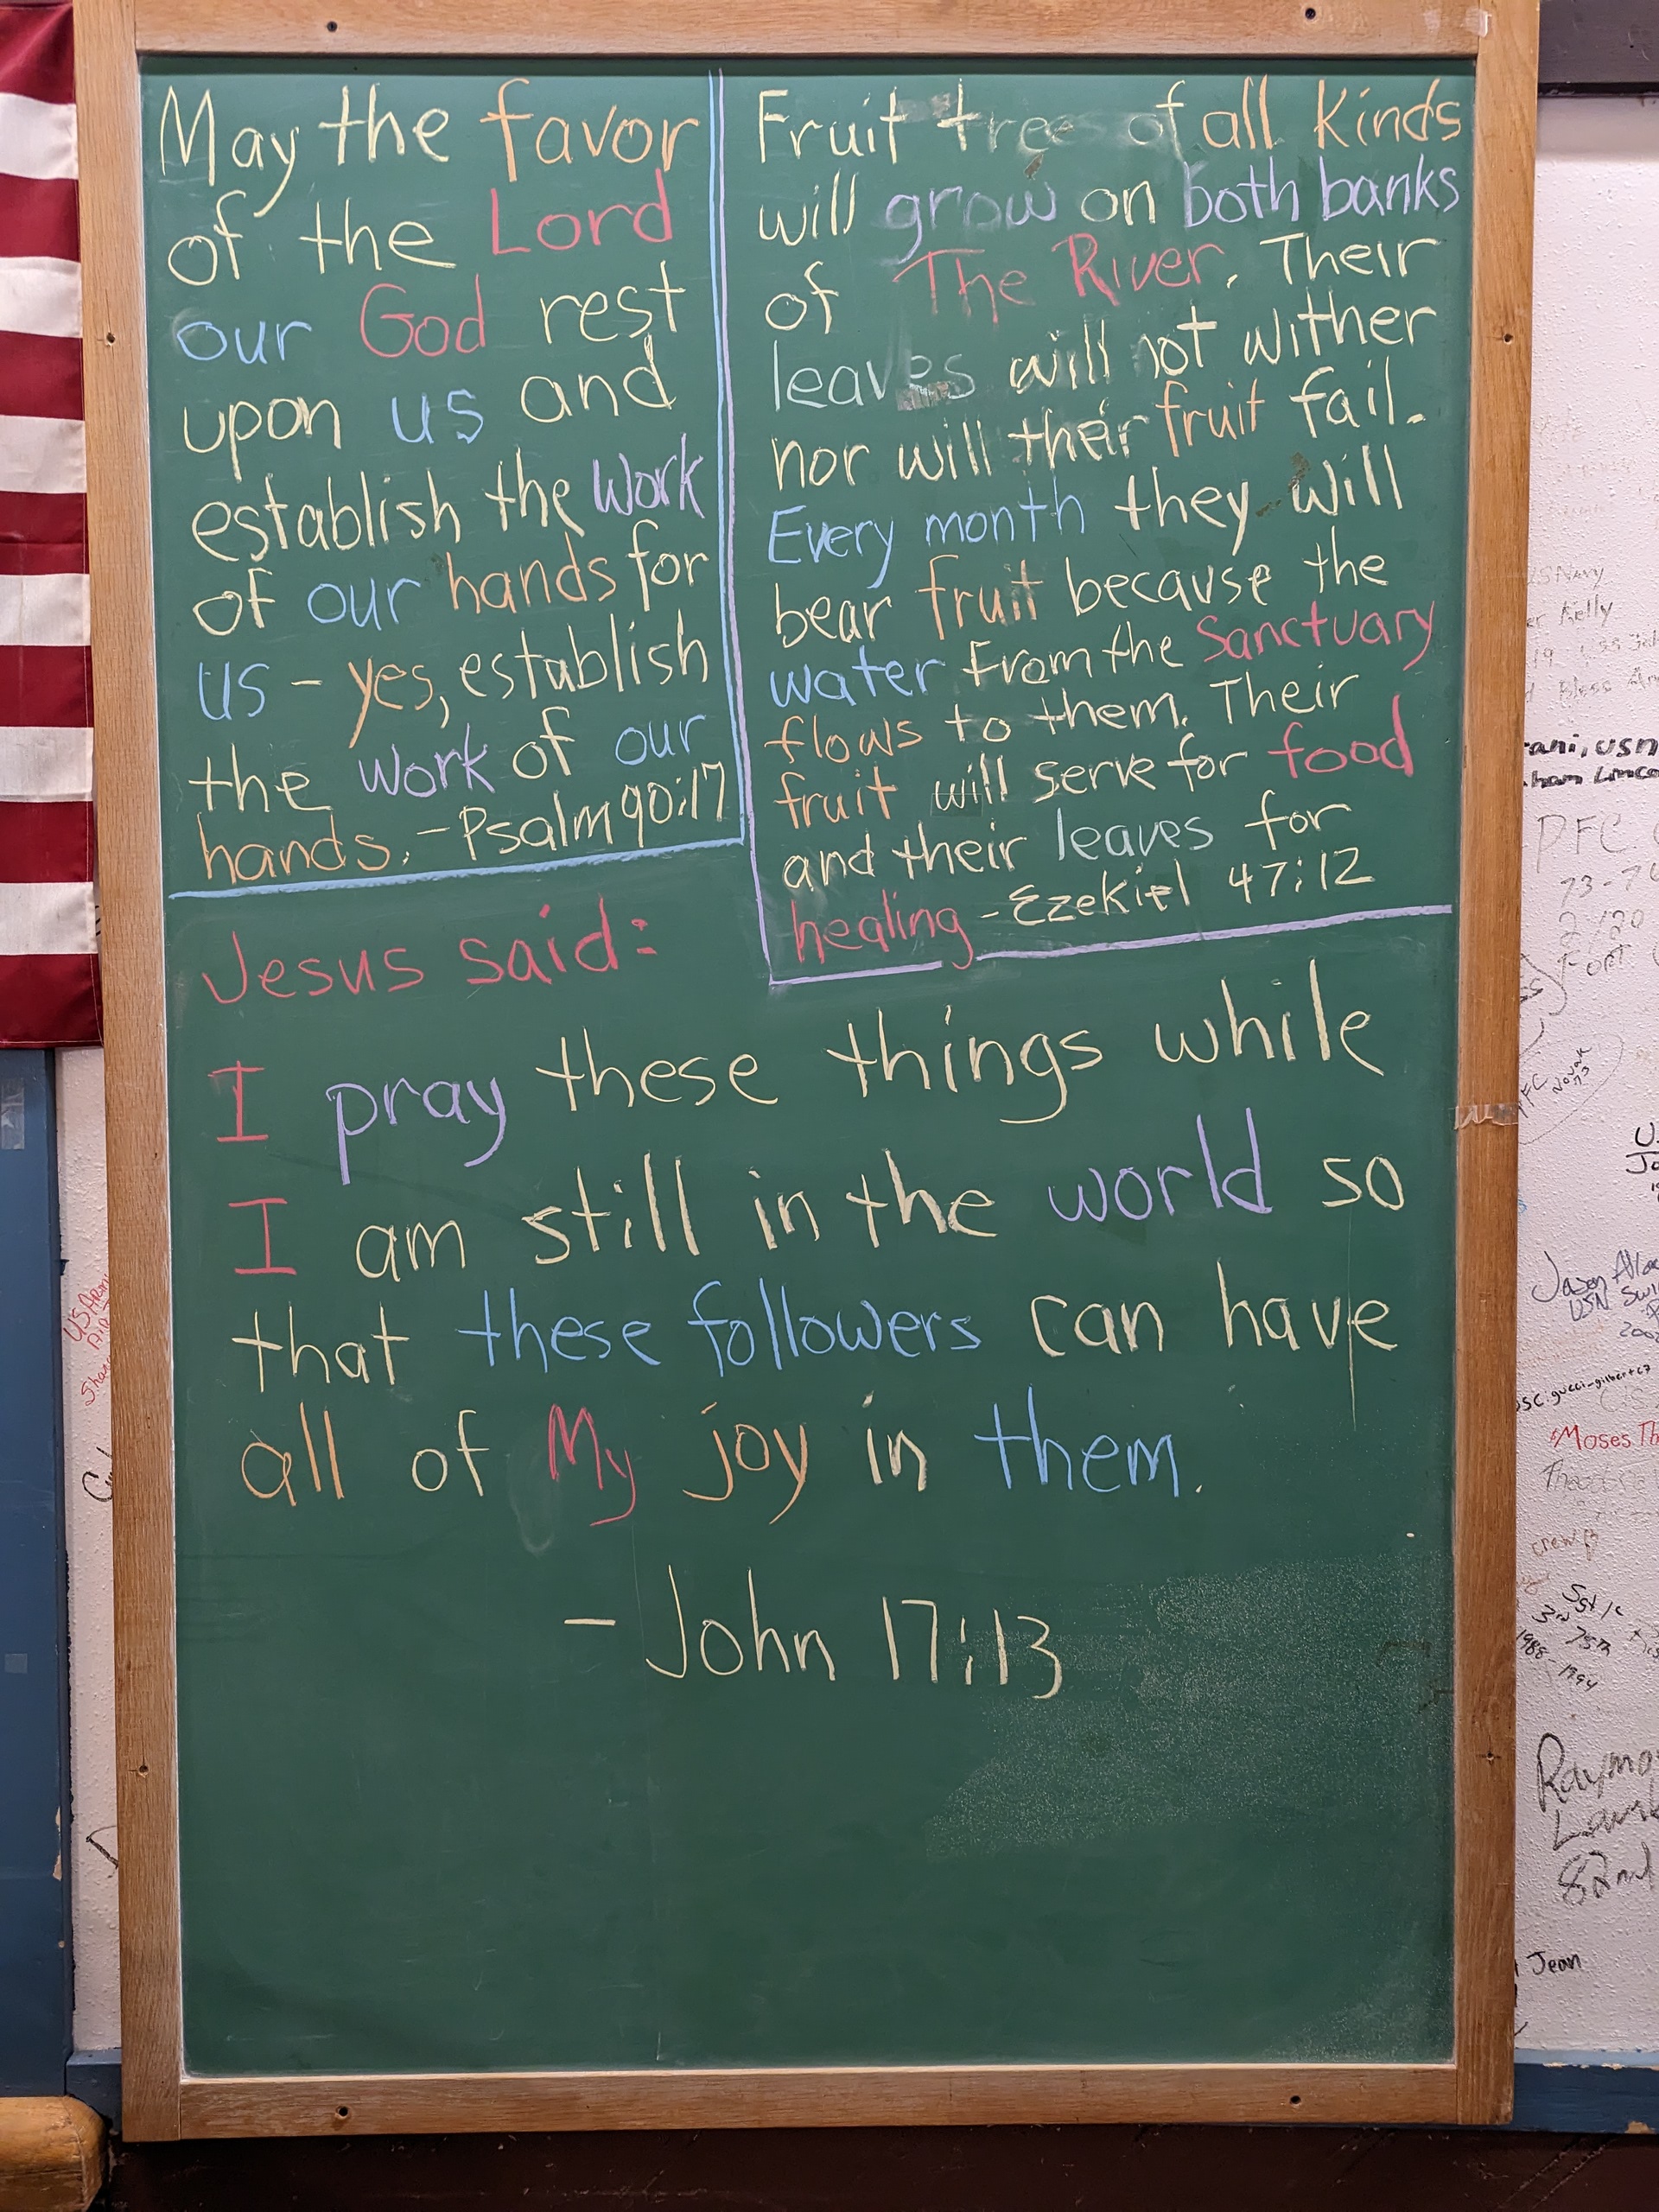 May the favor
of the Lord
our God rest
upon us and
establish the work
of our hands for
us - yes, establish
the work of our
hands. - Psalm 90:17
Fruit trees of all kinds
will grow on both banks
of The River. Their
leaves will not wither
nor will their fruit fail.
Every month they will
bear fruit because the
water from the Sanctuary
flows to them. Their
fruit will serve for food
and their leaves for
healing - Ezekiel 47:12
Jesus said:
I pray these things while
I am still in the world so
that these followers can have
all of My joy in them.
- John 17:13
US Army
US Navy
Kelly
Bless
USN
PFC
73-74
Fort
PFC
Novak
73
Jason
USN
2002
Moses
Crew
1988
1994
Raymo
82nd
Jean